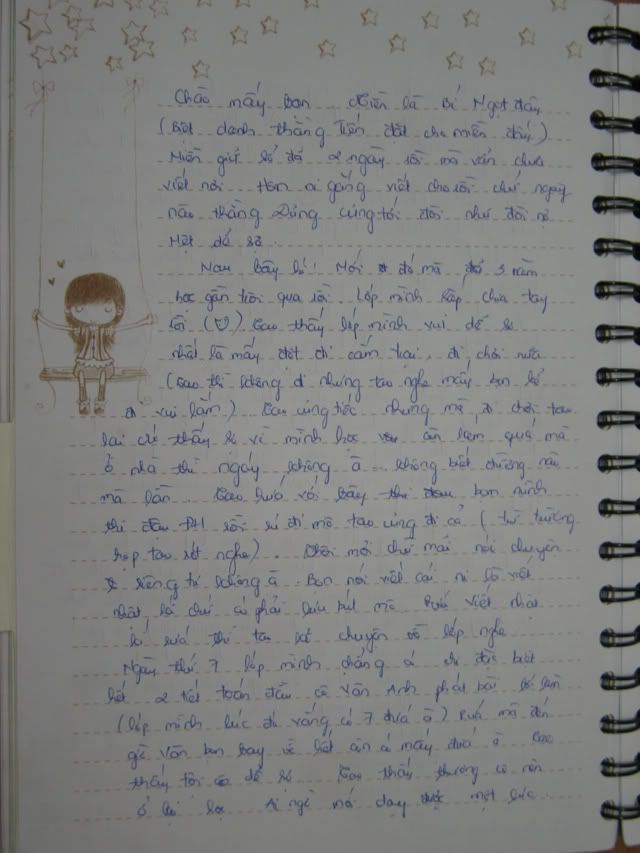 Chào mấy bạn Miền là Bí Ngọt đây
(Biệt danh thằng Tiến đặt cho miền đấy)
Miền giữ sổ đã 2 ngày rồi mà vẫn chưa
viết nổi Hôm ni gắng viết cho rồi chứ ngày
nào thằng Dũng cũng tới đòi như đòi nợ
Mệt dể sợ.
Nau bây hỉ! Mới đó mà đã 3 năm
học gần trôi qua rồi. Lớp mình sắp chia tay
rồi. Tao thấy lớp mình vui dể sợ
nhất là mấy đợt đi cắm trại, đi chơi nữa
(Tao thì không đi nhưng tao nghe mấy bạn kể
đi vui lắm) Tao cũng tiếc nhưng mà đi chơi tao
lại cứ thấy vì mình học quá mà
ở nhà thì ngáy không à.. không biết đường mô
mà lần. Tao hứa với bây thi xong bạn mình
thi đậu ĐH rồi rủ đi mô tao cũng đi cả (trừ trường
hợp tao rớt nghe). Thôi mới chừ mải nói chuyện
riêng tư không à. Bạn nói viết cái ni là viết
nhật ký chứ ai phải lưu bút mô Rứa viết nhật
ký rứa thì tao kể chuyện về lớp nghe
Ngày thứ 7 lớp mình chẳng có chi đặc biệt
hết 2 tiết toán đầu cô Vân Anh phát bài
(lớp mình lúc đó vắng có 7 đứa à) Rứa mà đến
giờ Văn bạn bay về hết còn có mấy đứa à Tao
thấy tội cô dể sợ Tao thấy thương cô nên
ở lại học Ai ngờ mới dạy được một lúc